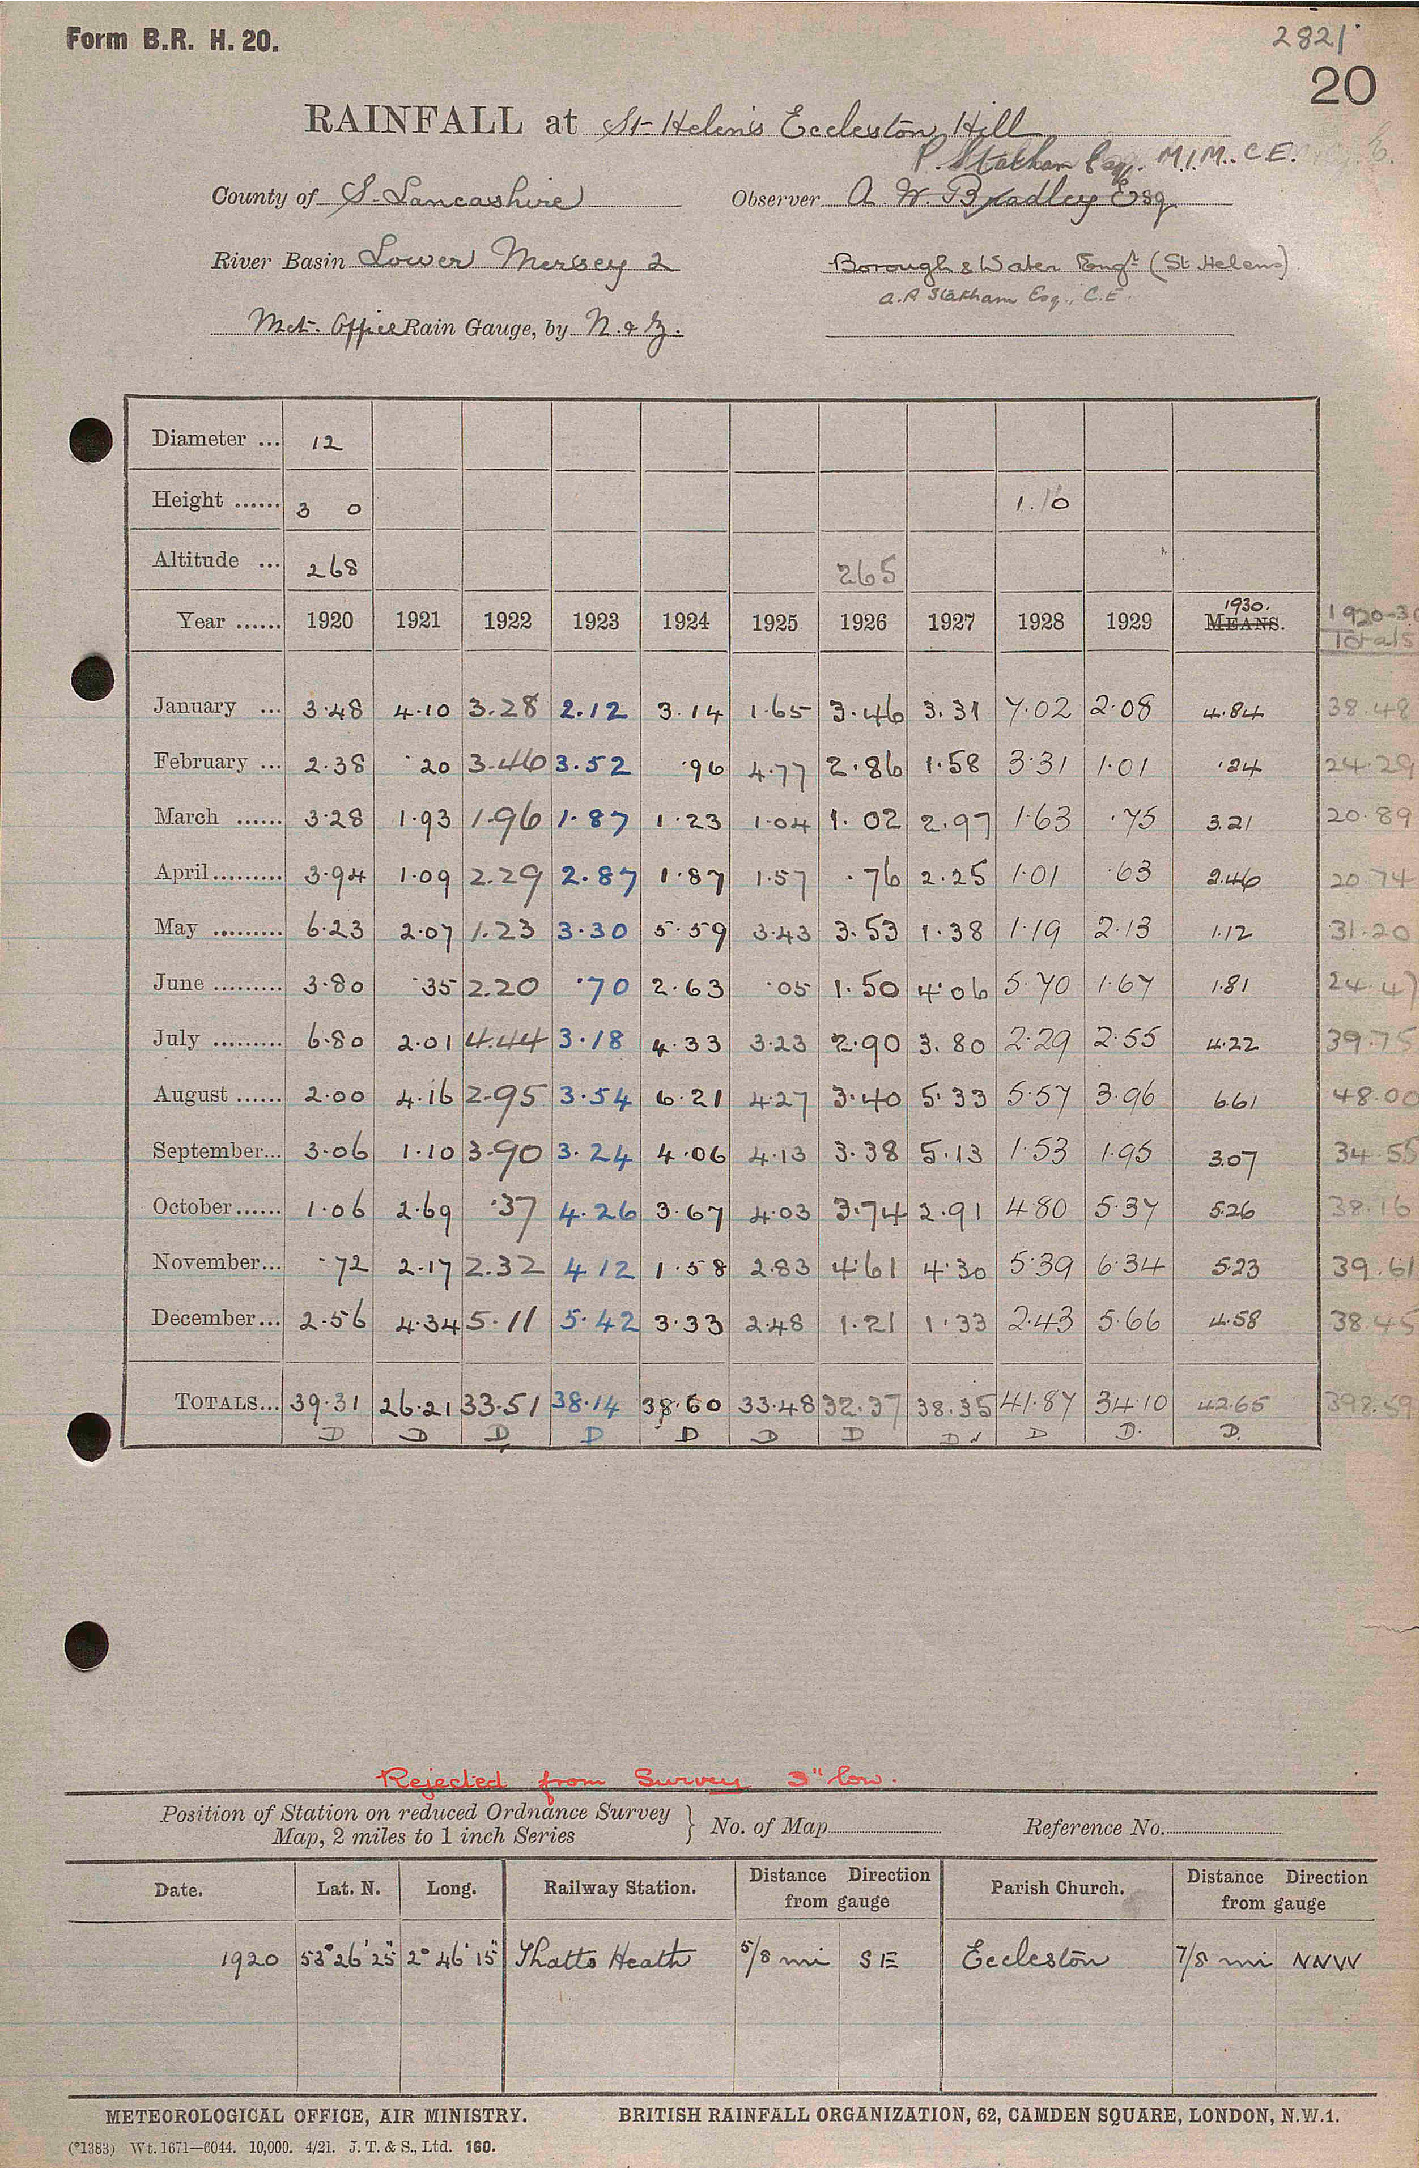 Form B.R. H. 20.
2821
20
RAINFALL at St Helens Eccleston Hill
P. Statham Esq. M.I.M.C.E.
County of S. Lancashire Observer A W Bradley Esq
River Basin Lower Mersey 2 Borough & Water Engr (St Helens)
A. P Statham Esq., C.E.
Met. Office Rain Gauge, by N. & Z.
Diameter ... 12
Height ...... 3 0 1.10
Altitude ... 268 265
Year ...... 1920 1921 1922 1923 1924 1925 1926 1927 1928 1929 1930. MEANS. 1920-30 Totals
January ... 3.48 4.10 3.28 2.12 3.14 1.65 3.46 3.31 7.02 2.08 4.84 38.48
February ... 2.38 .20 3.46 3.52 .96 4.77 2.86 1.58 3.31 1.01 .24 24.29
March ...... 3.28 1.93 1.96 1.87 1.23 1.04 1.02 2.97 1.63 .75 3.21 20.89
April ......... 3.94 1.09 2.29 2.87 1.87 1.57 .76 2.25 1.01 .63 2.46 20.74
May ......... 6.23 2.07 1.23 3.30 5.59 3.43 3.53 1.38 1.19 2.13 1.12 31.20
June ......... 3.80 .35 2.20 .70 2.63 .05 1.50 4.06 5.70 1.67 1.81 24.47
July ......... 6.80 2.01 4.44 3.18 4.33 3.23 2.90 3.80 2.29 2.55 4.22 39.75
August ...... 2.00 4.16 2.95 3.54 6.21 4.27 3.40 5.33 5.57 3.96 6.61 48.00
September... 3.06 1.10 3.90 3.24 4.06 4.13 3.38 5.13 1.53 1.95 3.07 34.55
October...... 1.06 2.69 .37 4.26 3.67 4.03 3.74 2.91 4.80 5.37 5.26 38.16
November... .72 2.17 2.32 4.12 1.58 2.83 4.61 4.30 5.39 6.34 5.23 39.61
December... 2.56 4.34 5.11 5.42 3.33 2.48 1.21 1.33 2.43 5.66 4.58 38.45
TOTALS... 39.31 26.21 33.51 38.14 38.60 33.48 32.37 38.35 41.87 34.10 42.65 398.59
D D D D D D D D ✓ D D. D.
Rejected from Survey 3" low.
Position of Station on reduced Ordnance Survey
Map, 2 miles to 1 inch Series } No. of Map Reference No.
Date. Lat. N. Long. Railway Station. Distance Direction from gauge Parish Church. Distance Direction from gauge
1920 53° 26' 25" 2° 46' 15" Thatto Heath 5/8 mi SE Eccleston 7/8 mi NNW
METEOROLOGICAL OFFICE, AIR MINISTRY. BRITISH RAINFALL ORGANIZATION, 62, CAMDEN SQUARE, LONDON, N.W.1.
(*1383) Wt. 1671—6044. 10,000. 4/21. J. T. & S., Ltd. 160.